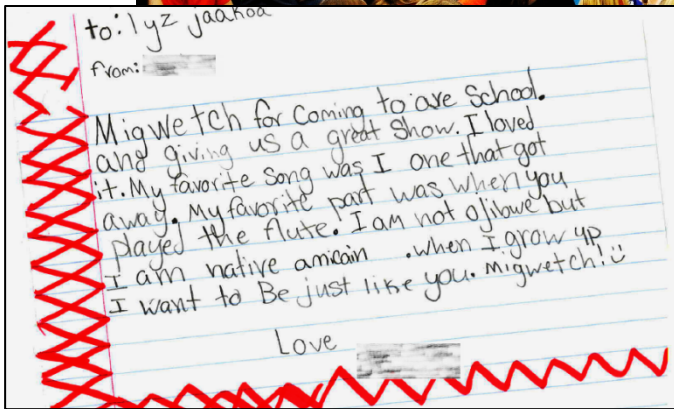 to: lyz jaakoa
from:
Migwetch for Coming to are School.
and giving us a great Show. I loved
it. My favorite song was I one that got
away. My favorite part was when you
played the flute. I am not ojibwe but
I am native amirain .when I grow up
I want to Be just like you. Migwetch! :)
Love